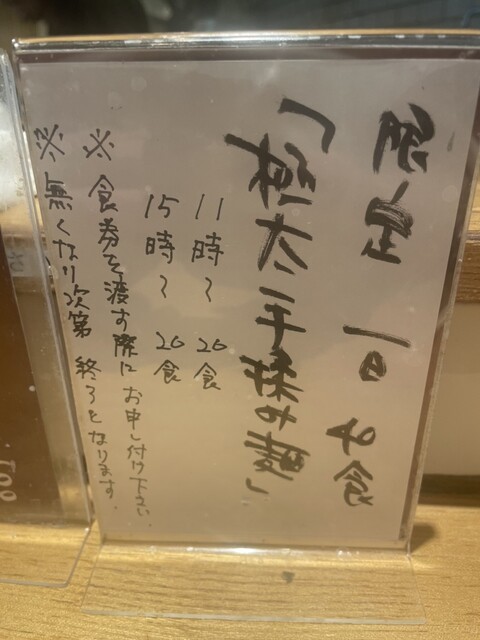 限定 一日 40食
「極太手揉み麺」
11時〜 20食
15時〜 20食
※食券を渡す際にお申し付け下さい。
※無くなり次第 終了となります。